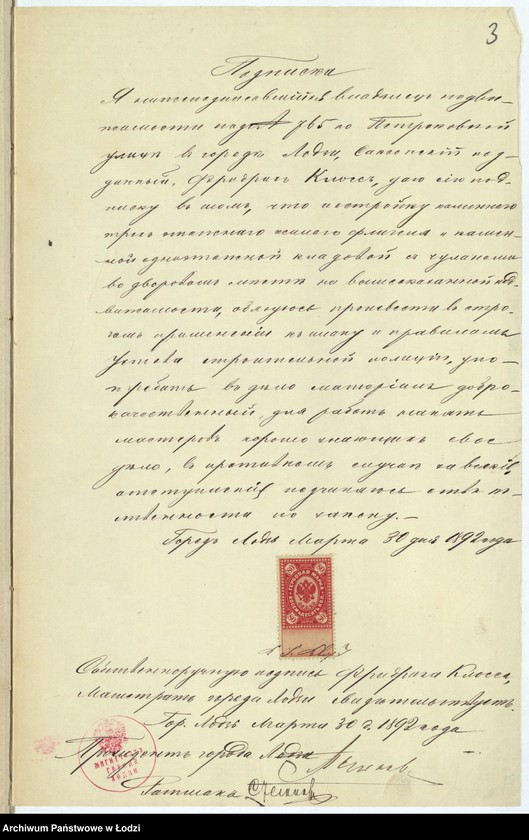 3
Подписка
Я нижеподписавшійся владѣлецъ недви-
жимости подъ № 765 по Петроковской
улицѣ въ городѣ Лодзи, Саксонскій под-
данный, Фридрихъ Клоссъ, даю сію под-
писку въ томъ, что постройку каменнаго
трехъ этажнаго жилого флигеля и камен-
ной одноэтажной кладовой съ чуланами
во дворовомъ мѣстѣ на вышесказанной нед-
вижимости, обязуюсь произвести въ стро-
гомъ примѣненіи къ плану и правиламъ
Устава строительной полиціи, упо-
требить въ дѣло матеріалъ добро-
качественный, для работъ нанять
мастеровъ хорошо знающихъ свое
дѣло, въ противномъ случаѣ за всякія
отступленія подчиняюсь ответ-
ственности по закону. —
Городъ Лодзь Марта 30 дня 1892 года
Собственноручную подпись Фридриха Клосса,
Магистратъ города Лодзи свидѣтельствуетъ.
Гор. Лодзь Марта 30 г. 1892 года
Президентъ города Лодзи
Ратмана
Archiwum Państwowe w Łodzi